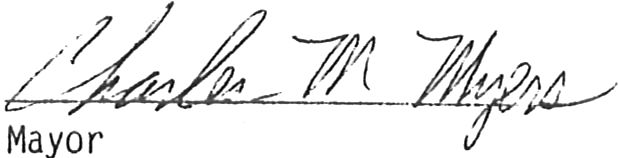 Charles M Myers
Mayor